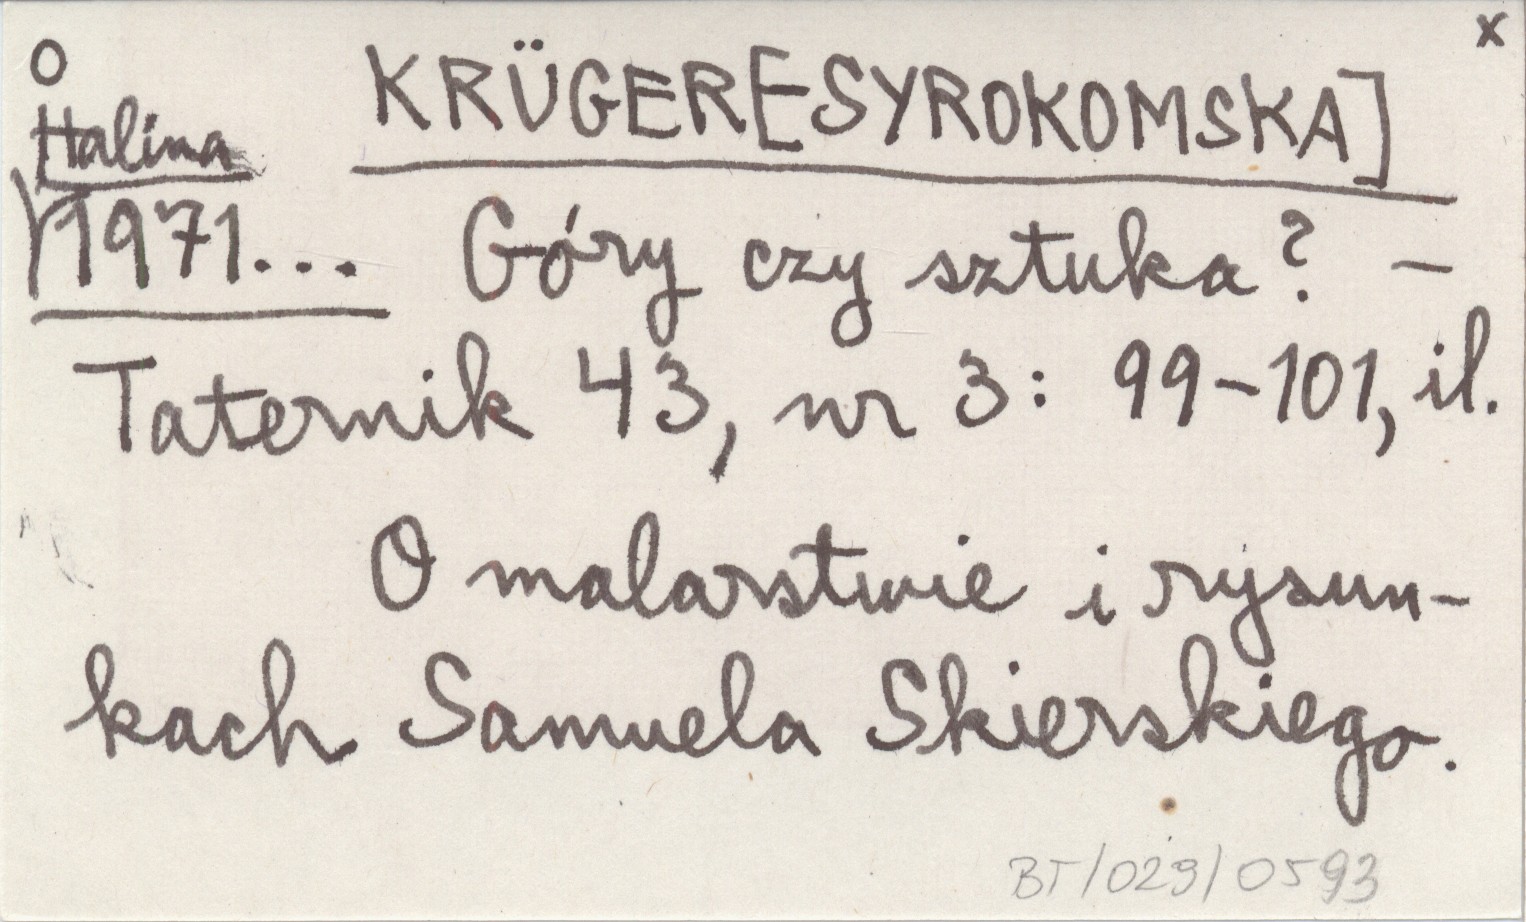 O
x
KRÜGER[SYROKOMSKA]
Halina
1971... Góry czy sztuka? –
Taternik 43, nr 3: 99–101, il.
O malarstwie i rysun-
kach Samuela Skierskiego.
BT/029/0593